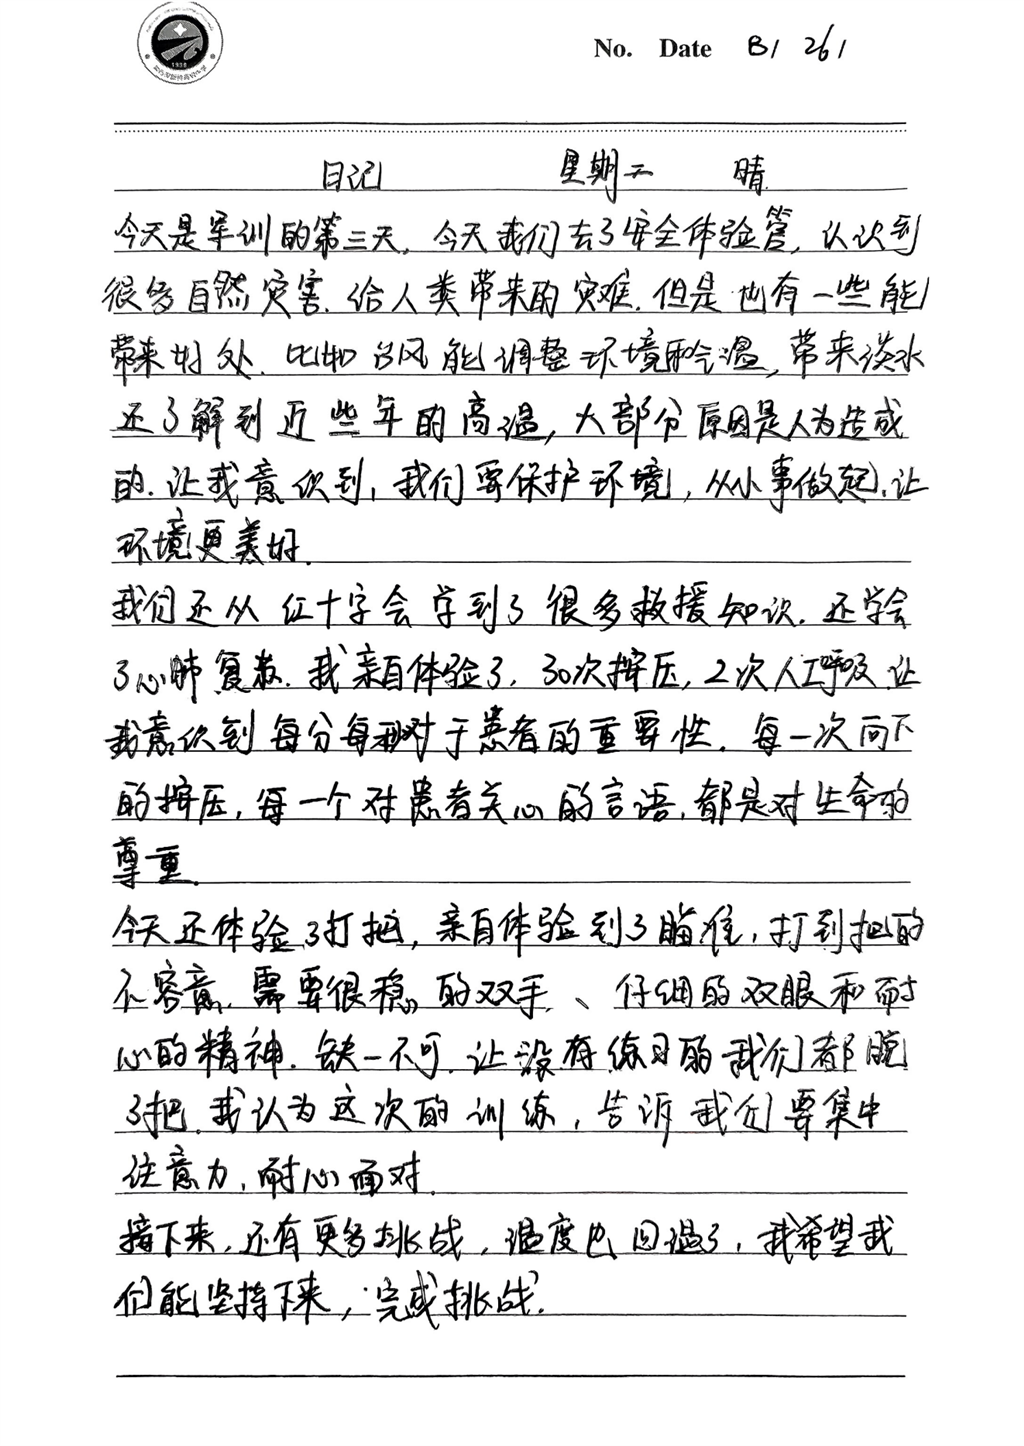 No. Date 8/26/
日记 星期二 晴
今天是军训的第三天,今天我们去了安全体验管,认识到
很多自然灾害.给人类带来的灾难.但是也有一些能
带来好处.比如台风能调整环境和气温,带来淡水
还了解到近些年的高温,大部分原因是人为造成
的.让我意识到,我们要保护环境,从小事做起,让
环境更美好.
我们还从红十字会学到了很多救援知识.还学会
了心肺复苏.我亲自体验了,30次按压,2次人工呼吸.让
我意识到每分每秒对于患者的重要性.每一次向下
的按压,每一个对患者关心的言语,都是对生命的
尊重.
今天还体验了打把,亲自体验到了瞄准,打到把的
不容意,需要很稳的双手、仔细的双眼和耐
心的精神.缺一不可.让没有练习的我们都脱
了把.我认为这次的训练,告诉我们要集中
注意力,耐心面对.
接下来,还有更多挑战,温度也回温了,我希望我
们能坚持下来,完成挑战.